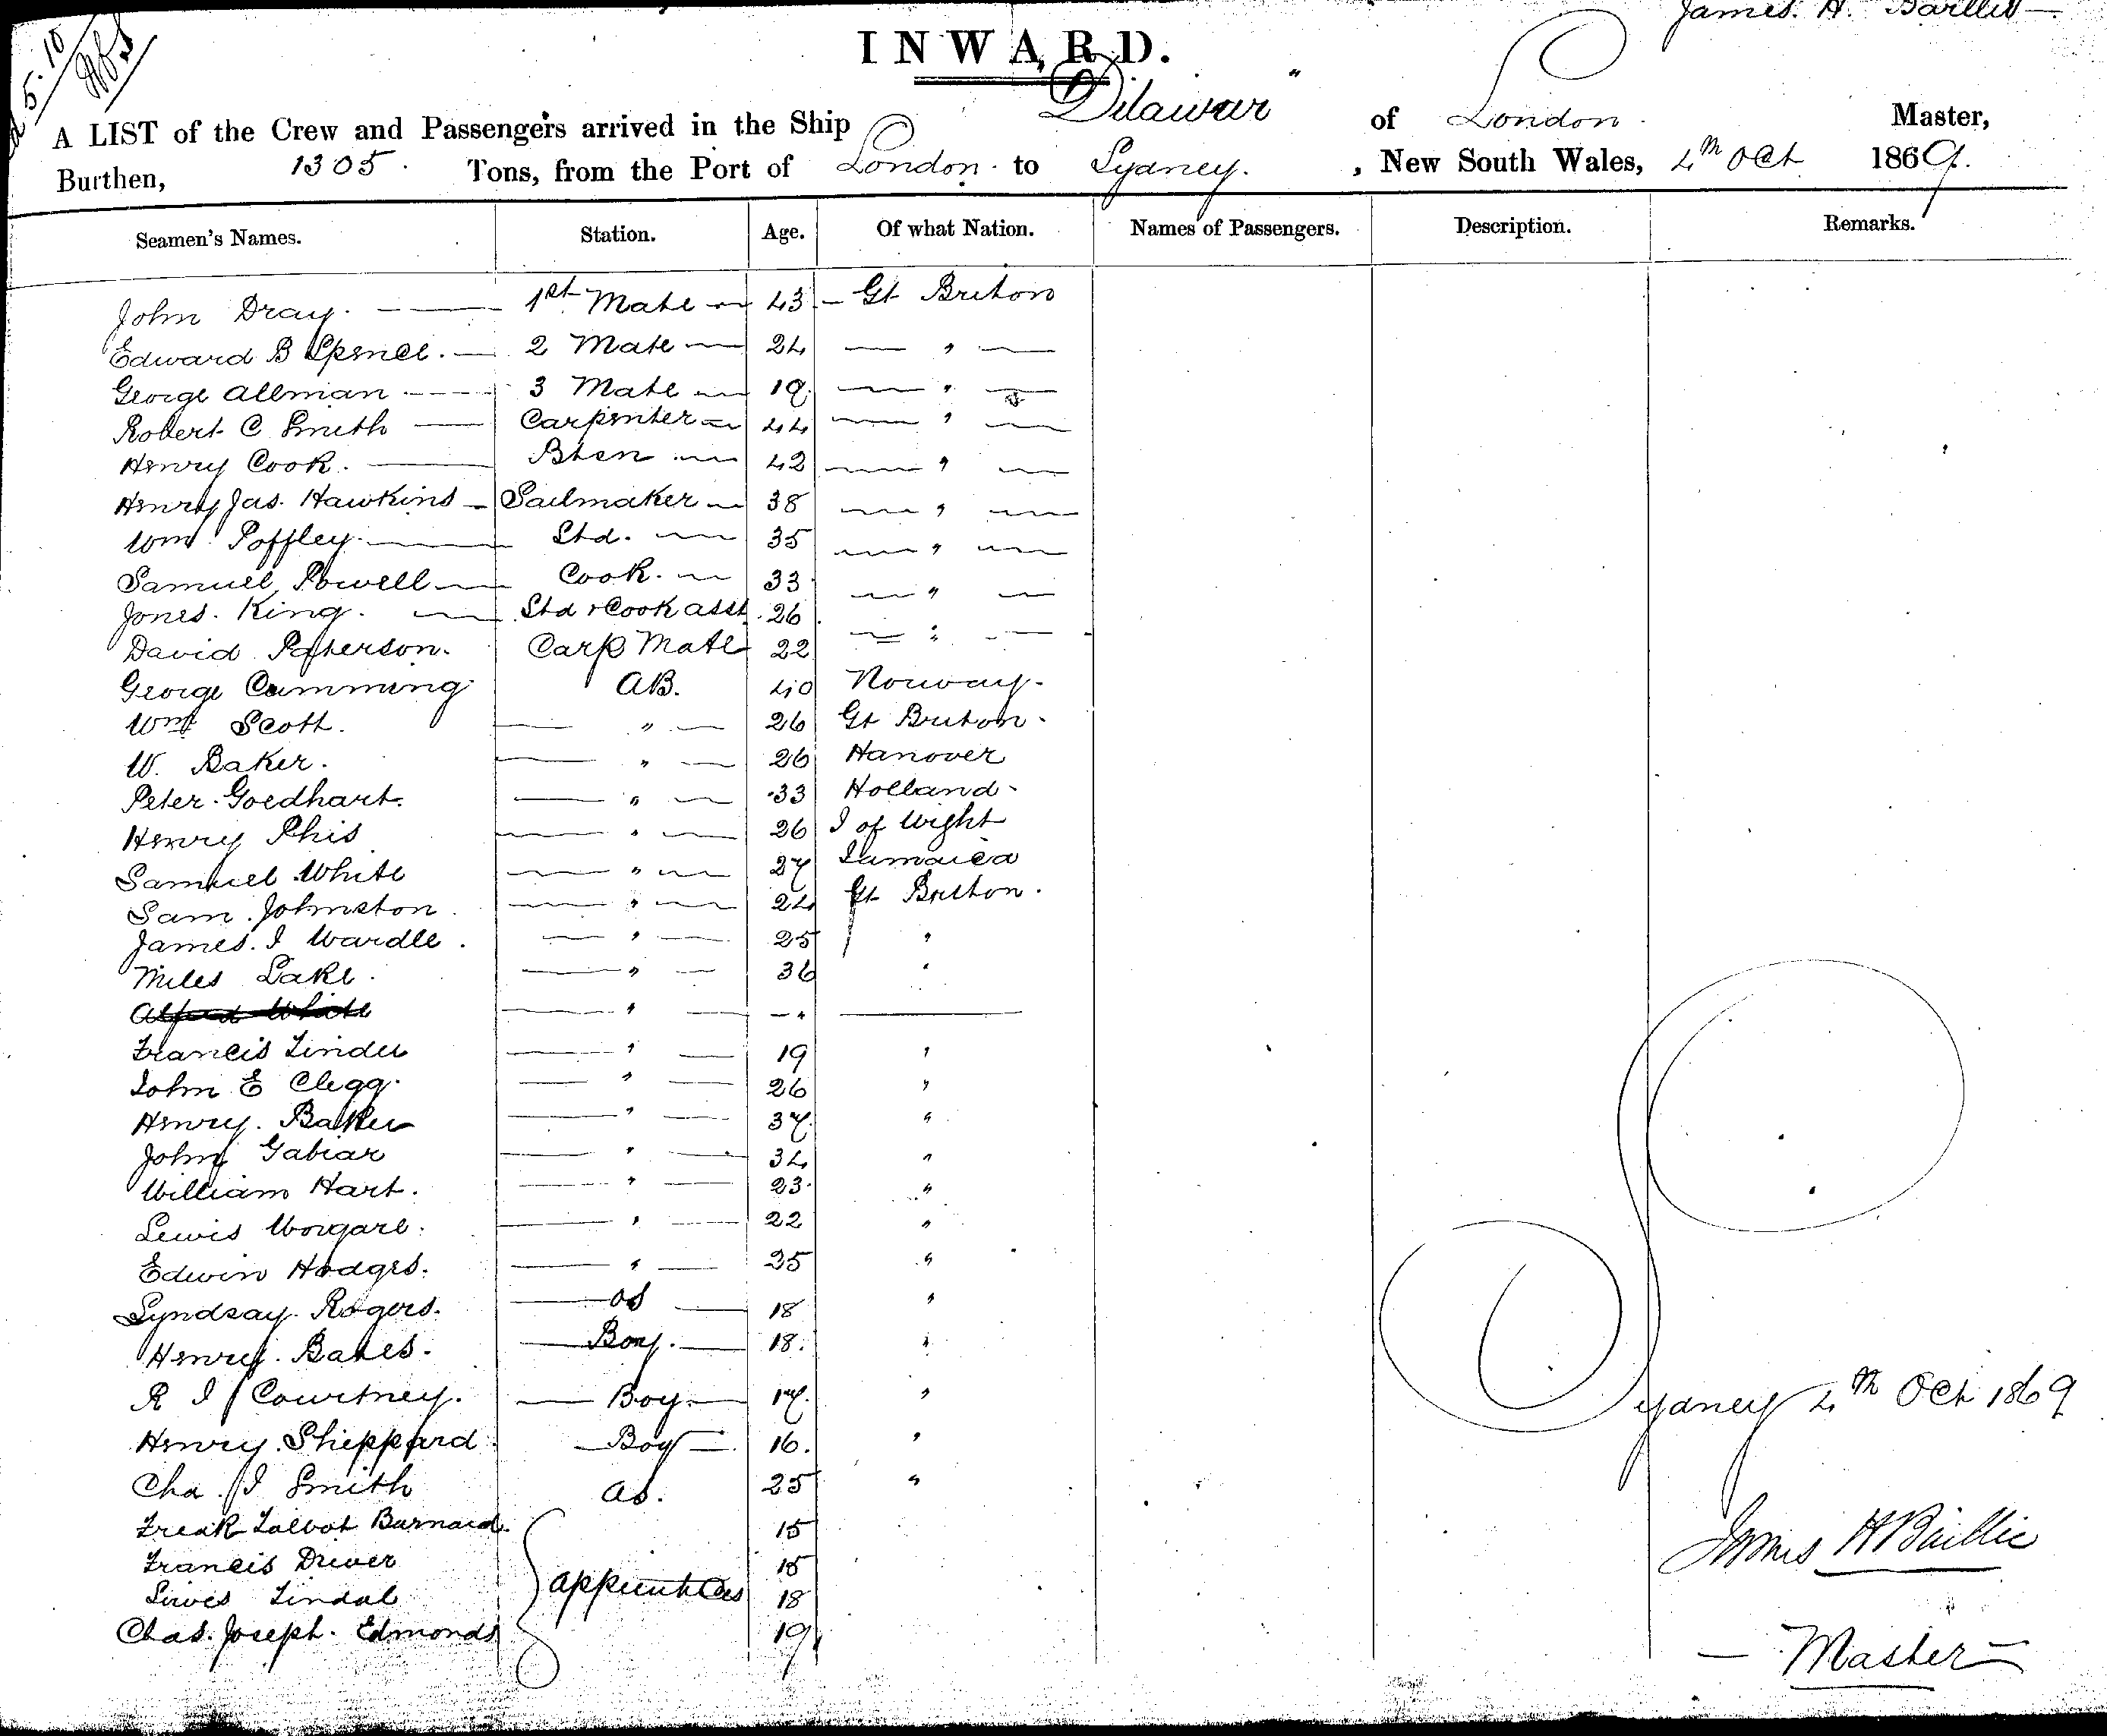 James. H. Baillie
5.10
INWARD.
A LIST of the Crew and Passengers arrived in the Ship "Dilawur" of London Master,
Burthen, 1305. Tons, from the Port of London to Sydney. , New South Wales, 4th Oct 1869.
Seamen's Names. Station. Age. Of what Nation. Names of Passengers. Description. Remarks.
John Dray. 1st Mate 43 Gt Briton
Edward B Spence. 2 Mate 24 "
George Allman 3 Mate 19 "
Robert C Smith Carpenter 44 "
Henry Cook. Btsn 42 "
Henry Jas. Hawkins Sailmaker 38 "
Wm Poffley Std. 35 "
Samuel Powell Cook. 33 "
Jones. King. Std & Cook asst. 26 "
David Paterson. Carp Mate 22
George Cumming AB. 40 Norway.
Wm Scott. " 26 Gt Briton.
W. Baker. " 26 Hanover
Peter. Goedhart. " 33 Holland
Henry Phis " 26 I of Wight
Samuel White " 27 Jamaica
Sam. Johnston " 24 Gt Briton.
James. I Wardle. " 25 "
Miles Lake. " 36 "
Alfred White " - "
Francis " 19 "
John E Clegg. " 26 "
Henry. Baker " 37 "
John Gabiar " 34 "
William Hart. " 23 "
Lewis " 22 "
Edwin Hodges. " 35 "
Lyndsay Rogers. OS 18 "
Henry. Bates. Boy. 18. "
R I Courtney. Boy. 17. "
Sydney 4th Oct 1869
Henry. Sheppard Boy 16. "
Cha. I Smith 25 "
Talbot Barnard. 15
James H Baillie
Francis Driver 15
apprentices
18
Chas. Joseph. Edmonds 19
Master